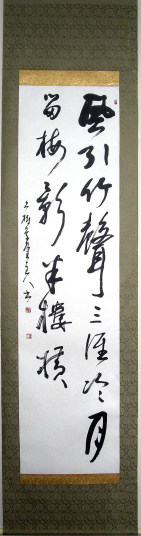 風引竹聲三徑冷月
留梅影半樓橫